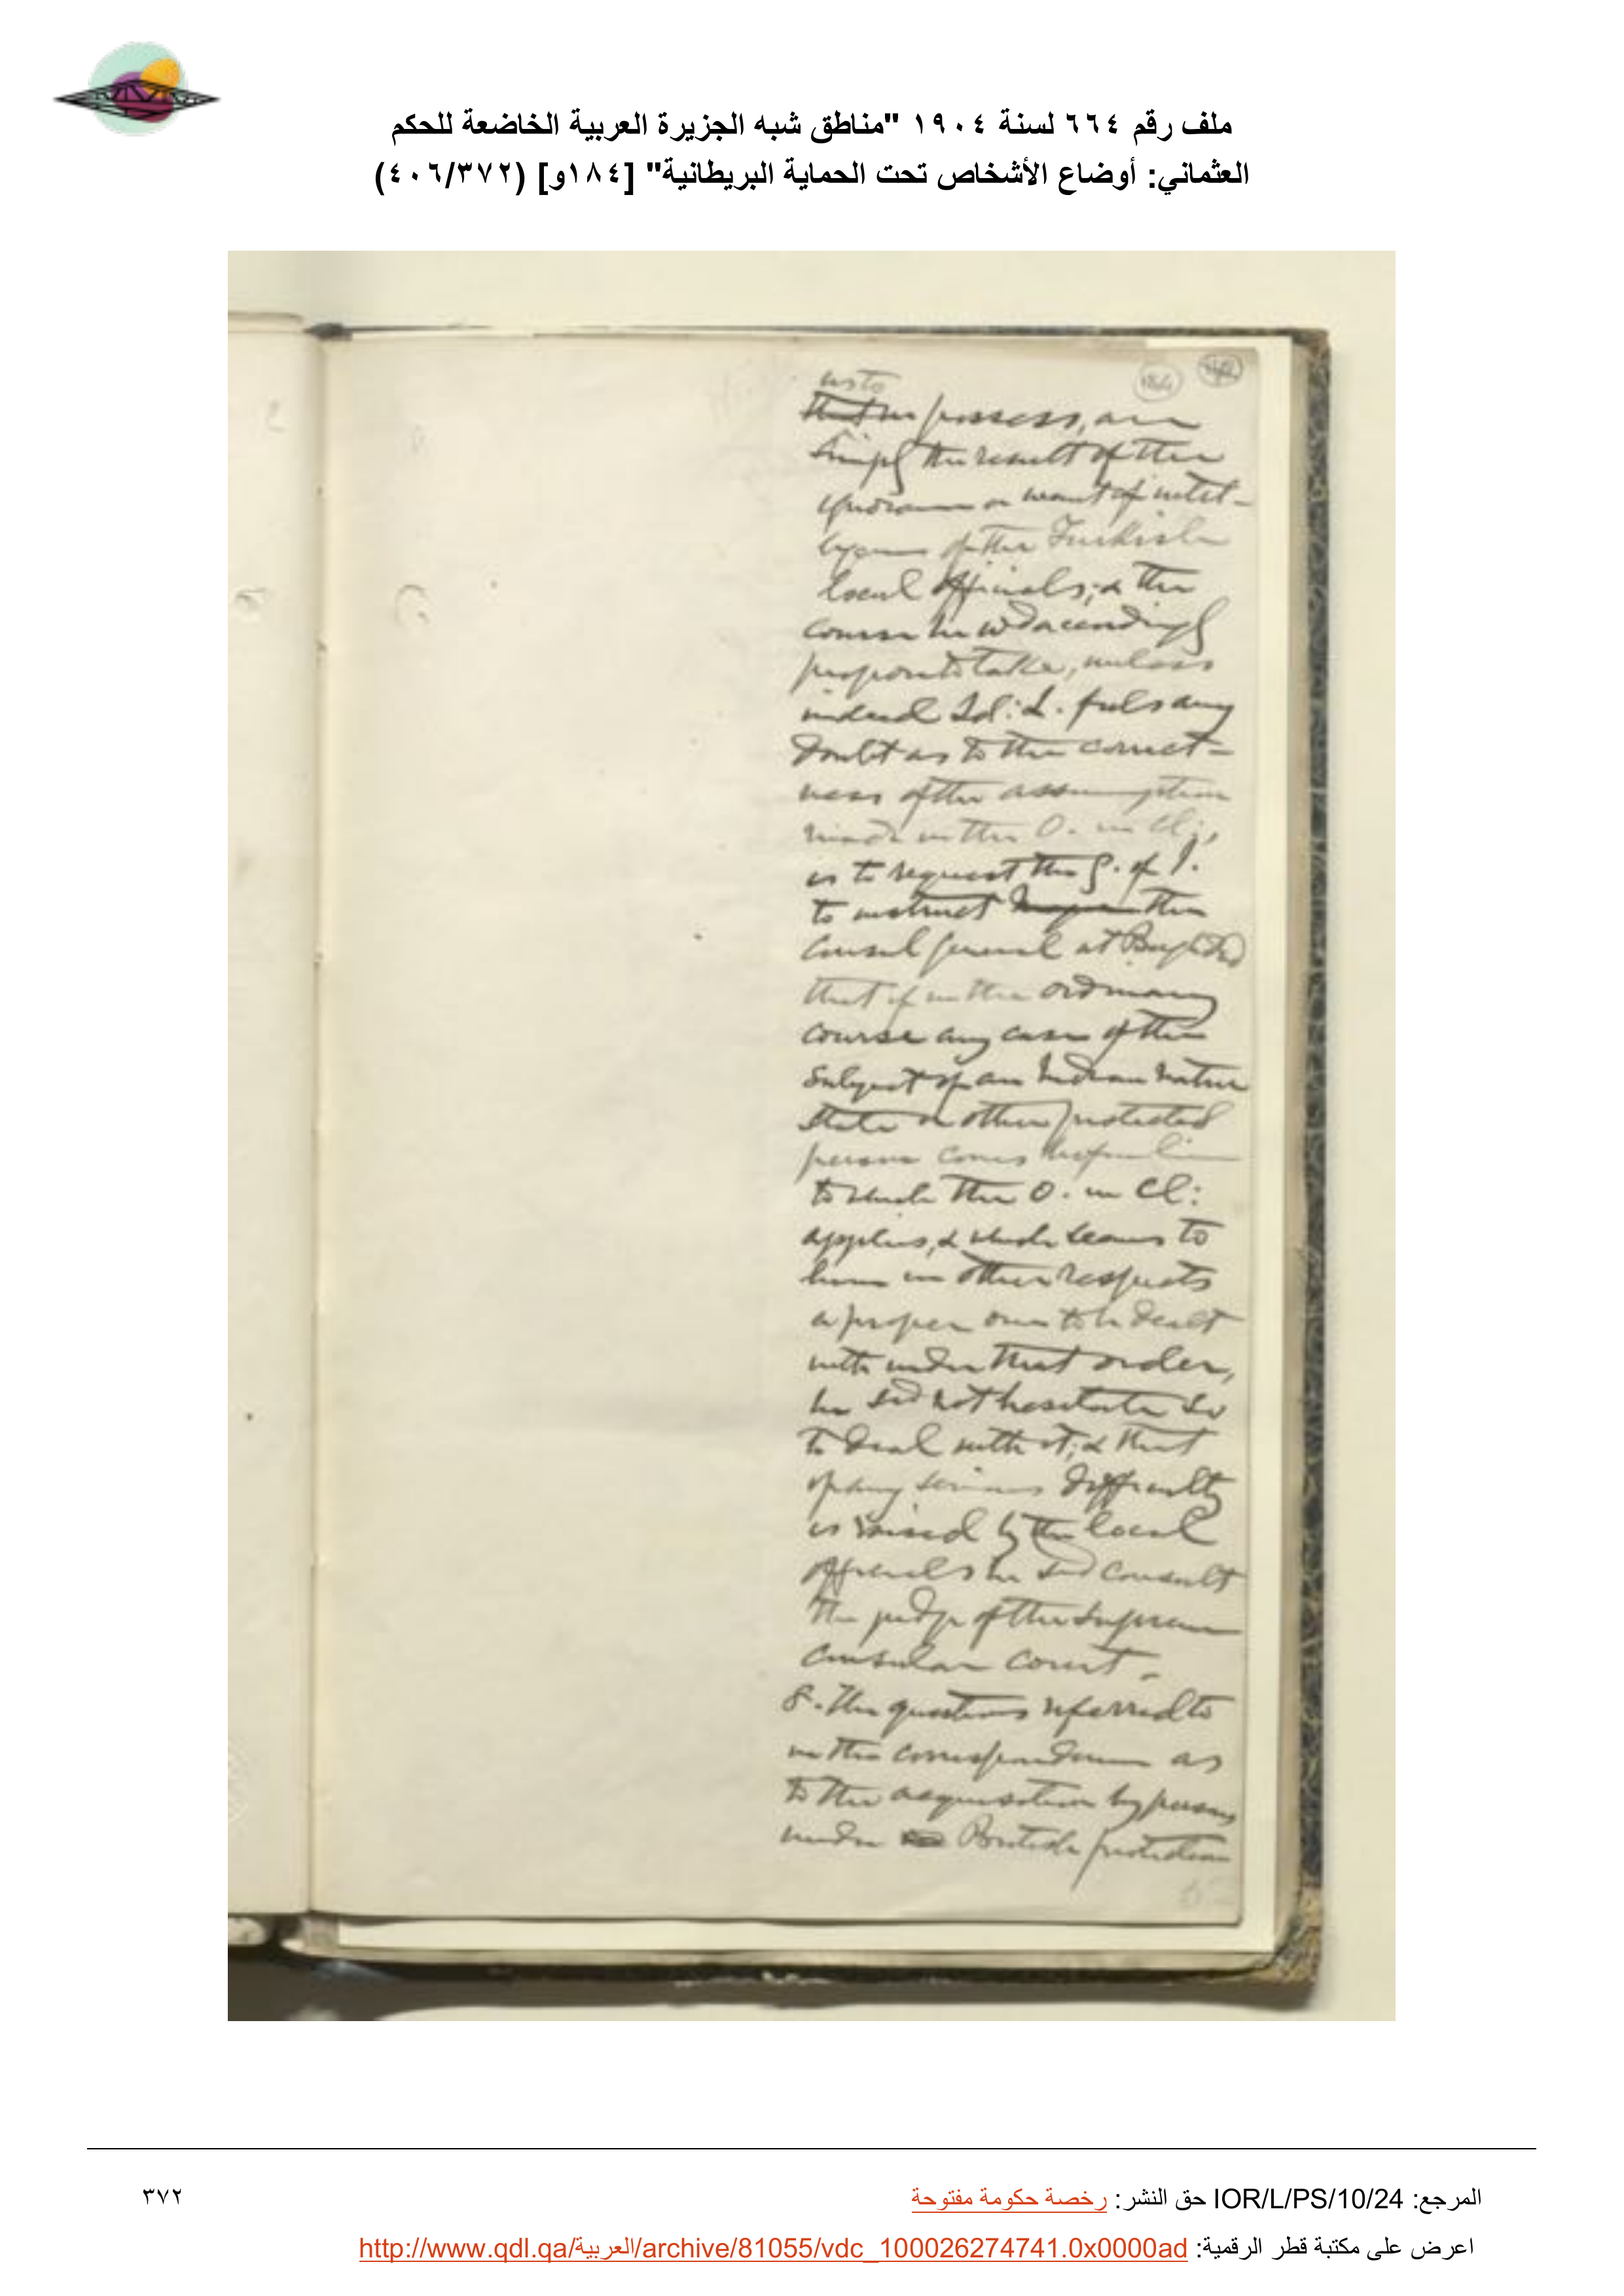 ملف رقم ٦٦٤ لسنة ١٩٠٤ "مناطق شبه الجزيرة العربية الخاضعة للحكم
العثماني: أوضاع الأشخاص تحت الحماية البريطانية" [١٨٤و] (٤٠٦/٣٧٢)
184
as to
possess, are
simply the result of the
ignorance or want of intel-
ligence of the Turkish
local officials; & the
course he wd accordingly
propose to take, unless
indeed Ld: L. feels any
doubt as to the correct-
ness of the assumption
made in the O. in Cl:,
is to request the G. of I.
to instruct the
Consul General at Baghdad
that if in the ordinary
course any case of the
subject of an Indian Native
State or other protected
person comes before him
to which the O. in Cl:
applies, & which seems to
him in other respects
a proper one to be dealt
with under that order,
he shd not hesitate so
to deal with it; & that
if any serious difficulty
is raised by the local
officials he shd consult
the judge of the Supreme
Consular Court.
8. The questions referred to
in the correspondence as
to the acquisition by persons
under British protection
المرجع: IOR/L/PS/10/24 حق النشر: رخصة حكومة مفتوحة
٣٧٢
اعرض على مكتبة قطر الرقمية: http://www.qdl.qa/العربية/archive/81055/vdc_100026274741.0x0000ad